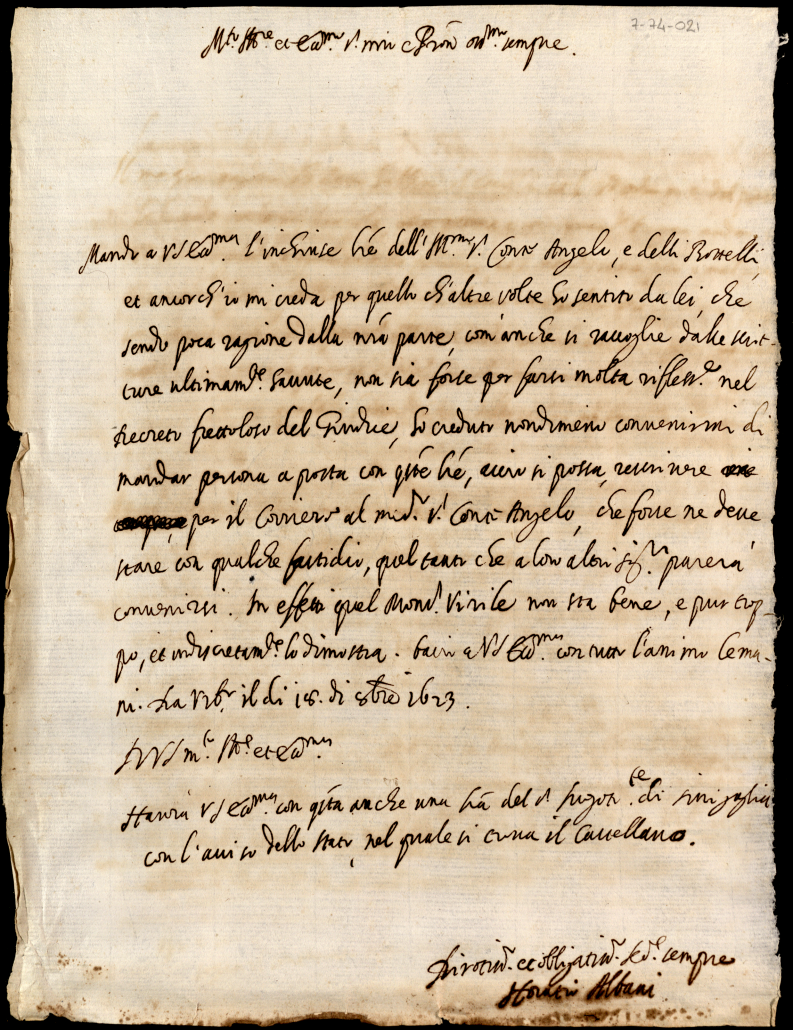 7-74-021
M.to Ill.re et Ecc.mo S.r mio e Pron oss.mo sempre.
Mando a VS Ecc.ma l'inchiuse lr̃e dell'Ill.mo S.r Conte Angelo, e delli
et ancorch'io mi creda per quello ch'altre volte ho sentito da lei, che
sendo poca ragione dalla nr̃a parte, com'anche si raccoglie dalle scrit-
ture ultimam.te havute, non sia forse per farsi molta rifless.e nel
decreto frettoloso del Giudice, ho creduto nondimeno convenirmi di
mandar persona a posta con q̃ste lr̃e, acciò si possa rescrivere
per il Corriero al med.o S.r Conte Angelo, che forse ne deve
stare con qualche fastidio, quel tanto che a loro altri Sig.ri parerà
convenirsi. In effetti quel Mond.o Virile non sta bene, e pur trop-
po, et indiscretam.te lo dimostra. bacio a VS Ecc.ma con tutto l'animo le ma-
ni. Da Urb.o il di 18. di 8bre 1623.
Di VS m.to Ill.re et Ecc.ma
Havrà VS Ecc.ma con q̃sta anche una lr̃a del S.r di Sinigaglia
con l'aviso dello stato, nel quale si trova il Cancellario.
Divotiss.o et obligatiss.o se.re sempre
Horatio Albani